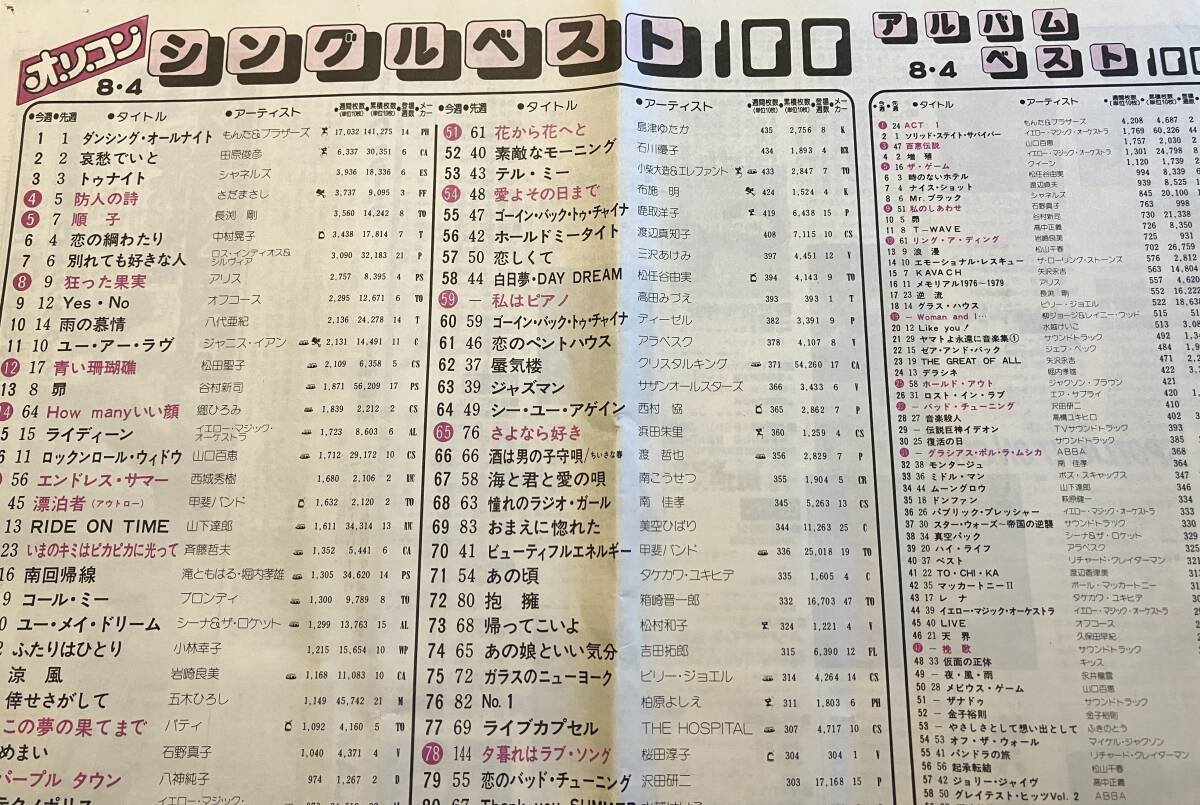 オリコン シングルベスト100
8・4
アルバム ベスト100
8・4
●今週 ●先週 ●タイトル ●アーティスト ●週間枚数(単位10枚) ●累積枚数(単位10枚) ●登場週数 ●メーカー
1 1 ダンシング・オールナイト もんた&ブラザーズ 17,032 141,275 14 PH
2 2 哀愁でいと 田原俊彦 6,337 30,351 6 CA
3 3 トゥナイト シャネルズ 3,936 18,336 6 ES
4 5 防人の詩 さだまさし 3,737 9,095 3 FF
5 7 順子 長渕 剛 3,560 14,242 8 TO
6 4 恋の綱わたり 中村晃子 3,438 17,814 7 T
7 6 別れても好きな人 ロス・インディオス&シルヴィア 3,090 32,183 21 P
8 9 狂った果実 アリス 2,757 8,395 4 PS
9 12 Yes・No オフコース 2,295 12,671 6 TO
10 14 雨の慕情 八代亜紀 2,136 24,278 14 T
11 10 ユー・アー・ラヴ ジャニス・イアン 2,131 14,491 11 C
12 17 青い珊瑚礁 松田聖子 2,109 6,358 5 CS
13 8 昴 谷村新司 1,871 56,209 17 PS
14 64 How manyいい顔 郷ひろみ 1,839 2,212 2 CS
5 15 ライディーン イエロー・マジック・オーケストラ 1,723 8,603 6 AL
6 11 ロックンロール・ウィドウ 山口百恵 1,712 29,172 10 CS
56 エンドレス・サマー 西城秀樹 1,680 2,106 2
45 漂泊者(アウトロー) 甲斐バンド 1,632 2,120 2 TO
13 RIDE ON TIME 山下達郎 1,611 34,314 13
23 いまのキミはピカピカに光って 斉藤哲夫 1,352 5,441 6 CA
16 南回帰線 滝ともはる・堀内孝雄 1,305 34,620 14 PS
9 コール・ミー ブロンディ 1,300 9,789 8 TO
0 ユー・メイ・ドリーム シーナ&ザ・ロケット 1,299 13,763 15 AL
2 ふたりはひとり 小林幸子 1,215 15,654 10 WP
涼風 岩崎良美 1,168 11,083 10 CA
倖せさがして 五木ひろし 1,149 45,742 21 M
この夢の果てまで パティ 1,092 4,160 5 TO
めまい 石野真子 1,040 4,371 4 V
パープル タウン 八神純子 974 1,267 2 D
テクノポリス イエロー・マジック・
●今週 ●先週 ●タイトル ●アーティスト ●週間枚数(単位10枚) ●累積枚数(単位10枚) ●登場週数 ●メーカー
51 61 花から花へと 島津ゆたか 435 2,756 8 K
52 40 素敵なモーニング 石川優子 434 1,893 4
53 43 テル・ミー 小柴大造&エレファント 433 2,847 7 TO
54 48 愛よその日まで 布施 明 424 1,524 4 K
55 47 ゴーイン・バック・トゥ・チャイナ 鹿取洋子 419 6,438 15 P
56 42 ホールドミータイト 渡辺真知子 408 7,115 10 CS
57 50 恋しくて 三沢あけみ 397 4,451 12 V
58 44 白日夢・DAY DREAM 松任谷由実 394 4,143 9 TO
59 – 私はピアノ 高田みづえ 393 393 1 T
60 59 ゴーイン・バック・トゥ・チャイナ ディーゼル 382 3,391 9 P
61 46 恋のペントハウス アラベスク 378 4,107 8 V
62 37 蜃気楼 クリスタルキング 371 54,260 17 CA
63 39 ジャズマン サザンオールスターズ 366 3,433 6 V
64 49 シー・ユー・アゲイン 西村 協 365 2,862 7 P
65 76 さよなら好き 浜田朱里 360 1,259 4 CS
66 66 酒は男の子守唄/ちいさな春 渡 哲也 356 2,829 7 P
67 58 海と君と愛の唄 南こうせつ 355 1,904 5 CR
68 63 憧れのラジオ・ガール 南 佳孝 345 5,263 13 CS
69 83 おまえに惚れた 美空ひばり 344 11,263 25 C
70 41 ビューティフルエネルギー 甲斐バンド 336 25,018 19 TO
71 54 あの頃 タケカワ・ユキヒデ 335 1,605 4 C
72 80 抱擁 箱崎晋一郎 332 16,703 47 TO
73 68 帰ってこいよ 松村和子 324 1,221 4 V
74 65 あの娘といい気分 吉田拓郎 315 6,390 12 FL
75 72 ガラスのニューヨーク ビリー・ジョエル 314 4,264 14 CS
76 82 No.1 柏原よしえ 311 1,803 6 PH
77 69 ライブカプセル THE HOSPITAL 307 4,717 10 CS
78 144 夕暮れはラブ・ソング 桜田淳子 304 304 1 V
79 55 恋のバッド・チューニング 沢田研二 303 17,168 15 P
80 67 Thank you SUMMER 水越けいこ
●今週 ●先週 ●タイトル ●アーティスト ●週間枚数(単位10枚) ●累積枚数(単位10枚) ●登場週数
1 24 ACT 1 もんた&ブラザーズ 4,208 4,687 2
2 1 ソリッド・ステイト・サバイバー イエロー・マジック・オーケストラ 1,769 60,226 44
3 47 百恵伝説 山口百恵 1,757 2,030
4 2 増殖 イエロー・マジック・オーケストラ 1,301 24,798
5 16 ザ・ゲーム クイーン 1,120 1,739
6 3 時のないホテル 松任谷由実 994 8,339
7 4 ナイス・ショット 渡辺貞夫 939 8,525
8 6 Mr.ブラック シャネルズ 845 20,100
9 51 私のしあわせ 石野真子 763 998
10 5 昴 谷村新司 730 21,338
11 8 T-WAVE 高中正義 726 8,350
12 61 リング・ア・ディング 岩崎良美 725 931
13 9 浪漫 松山千春 702 26,759
14 10 エモーショナル・レスキュー ザ・ローリング・ストーンズ 576 2,812
15 7 KAVACH 矢沢永吉 563 14,804
16 11 メモリアル1976~1979 アリス 557 4,620
17 23 逆流 長渕 剛 552 16,222
18 14 グラス・ハウス ビリー・ジョエル 522 18,63
19 – Woman and I… 柳ジョージ&レイニー・ウッド 515
20 12 Like you! 水越けいこ 513
21 29 ヤマトよ永遠に音楽集① サウンドトラック 492
22 15 ゼア・アンド・バック ジェフ・ベック 484
23 19 THE GREAT OF ALL 矢沢永吉 471
24 13 デラシネ 堀内孝雄 422
25 58 ホールド・アウト ジャクソン・ブラウン 421
26 31 ロスト・イン・ラブ エア・サプライ 420
27 – バッド・チューニング 沢田研二 410
28 27 音楽殺人 高橋ユキヒロ 402
29 – 伝説巨神イデオン TVサウンドトラック 393
30 25 復活の日 サウンドトラック 385
31 – グラシアス・ポル・ラ・ムシカ ABBA 368
32 38 モンタージュ 南 佳孝 364
33 36 ミドル・マン ボズ・スキャッグス 347
34 44 ムーングロウ 山下達郎 346
35 18 ドンファン 萩原健一 334
36 26 パブリック・プレッシャー イエロー・マジック・オーケストラ 333
37 30 スター・ウォーズ~帝国の逆襲 サウンドトラック 330
38 34 真空パック シーナ&ザ・ロケット 329
39 20 ハイ・ライフ アラベスク 325
40 37 ベスト リチャード・クレイダーマン 32
41 22 TO・CHI・KA 渡辺香津美 313
42 35 マッカートニーII ポール・マッカートニー 31
43 17 レナ タケカワ・ユキヒデ 3
44 39 イエロー・マジック・オーケストラ イエロー・マジック・オーケストラ
45 40 LIVE オフコース
46 21 天界 久保田早紀
47 – 挽歌 サウンドトラック
48 33 仮面の正体 キッス
49 – 夜・風・雨 永井龍雲
50 28 メビウス・ゲーム 山口百恵
51 – ザナドゥ サウンドトラック
52 – 金子裕則 金子裕則
53 – やさしさとして想い出として ふきのとう
54 53 オフ・ザ・ウォール マイケル・ジャクソン
55 41 パンドラの旅 リチャード・クレイダーマン
56 56 起承転結 松山千春
57 42 ジョリー・ジャイヴ 高中正義
58 50 グレイテスト・ヒッツVol.2 ABBA